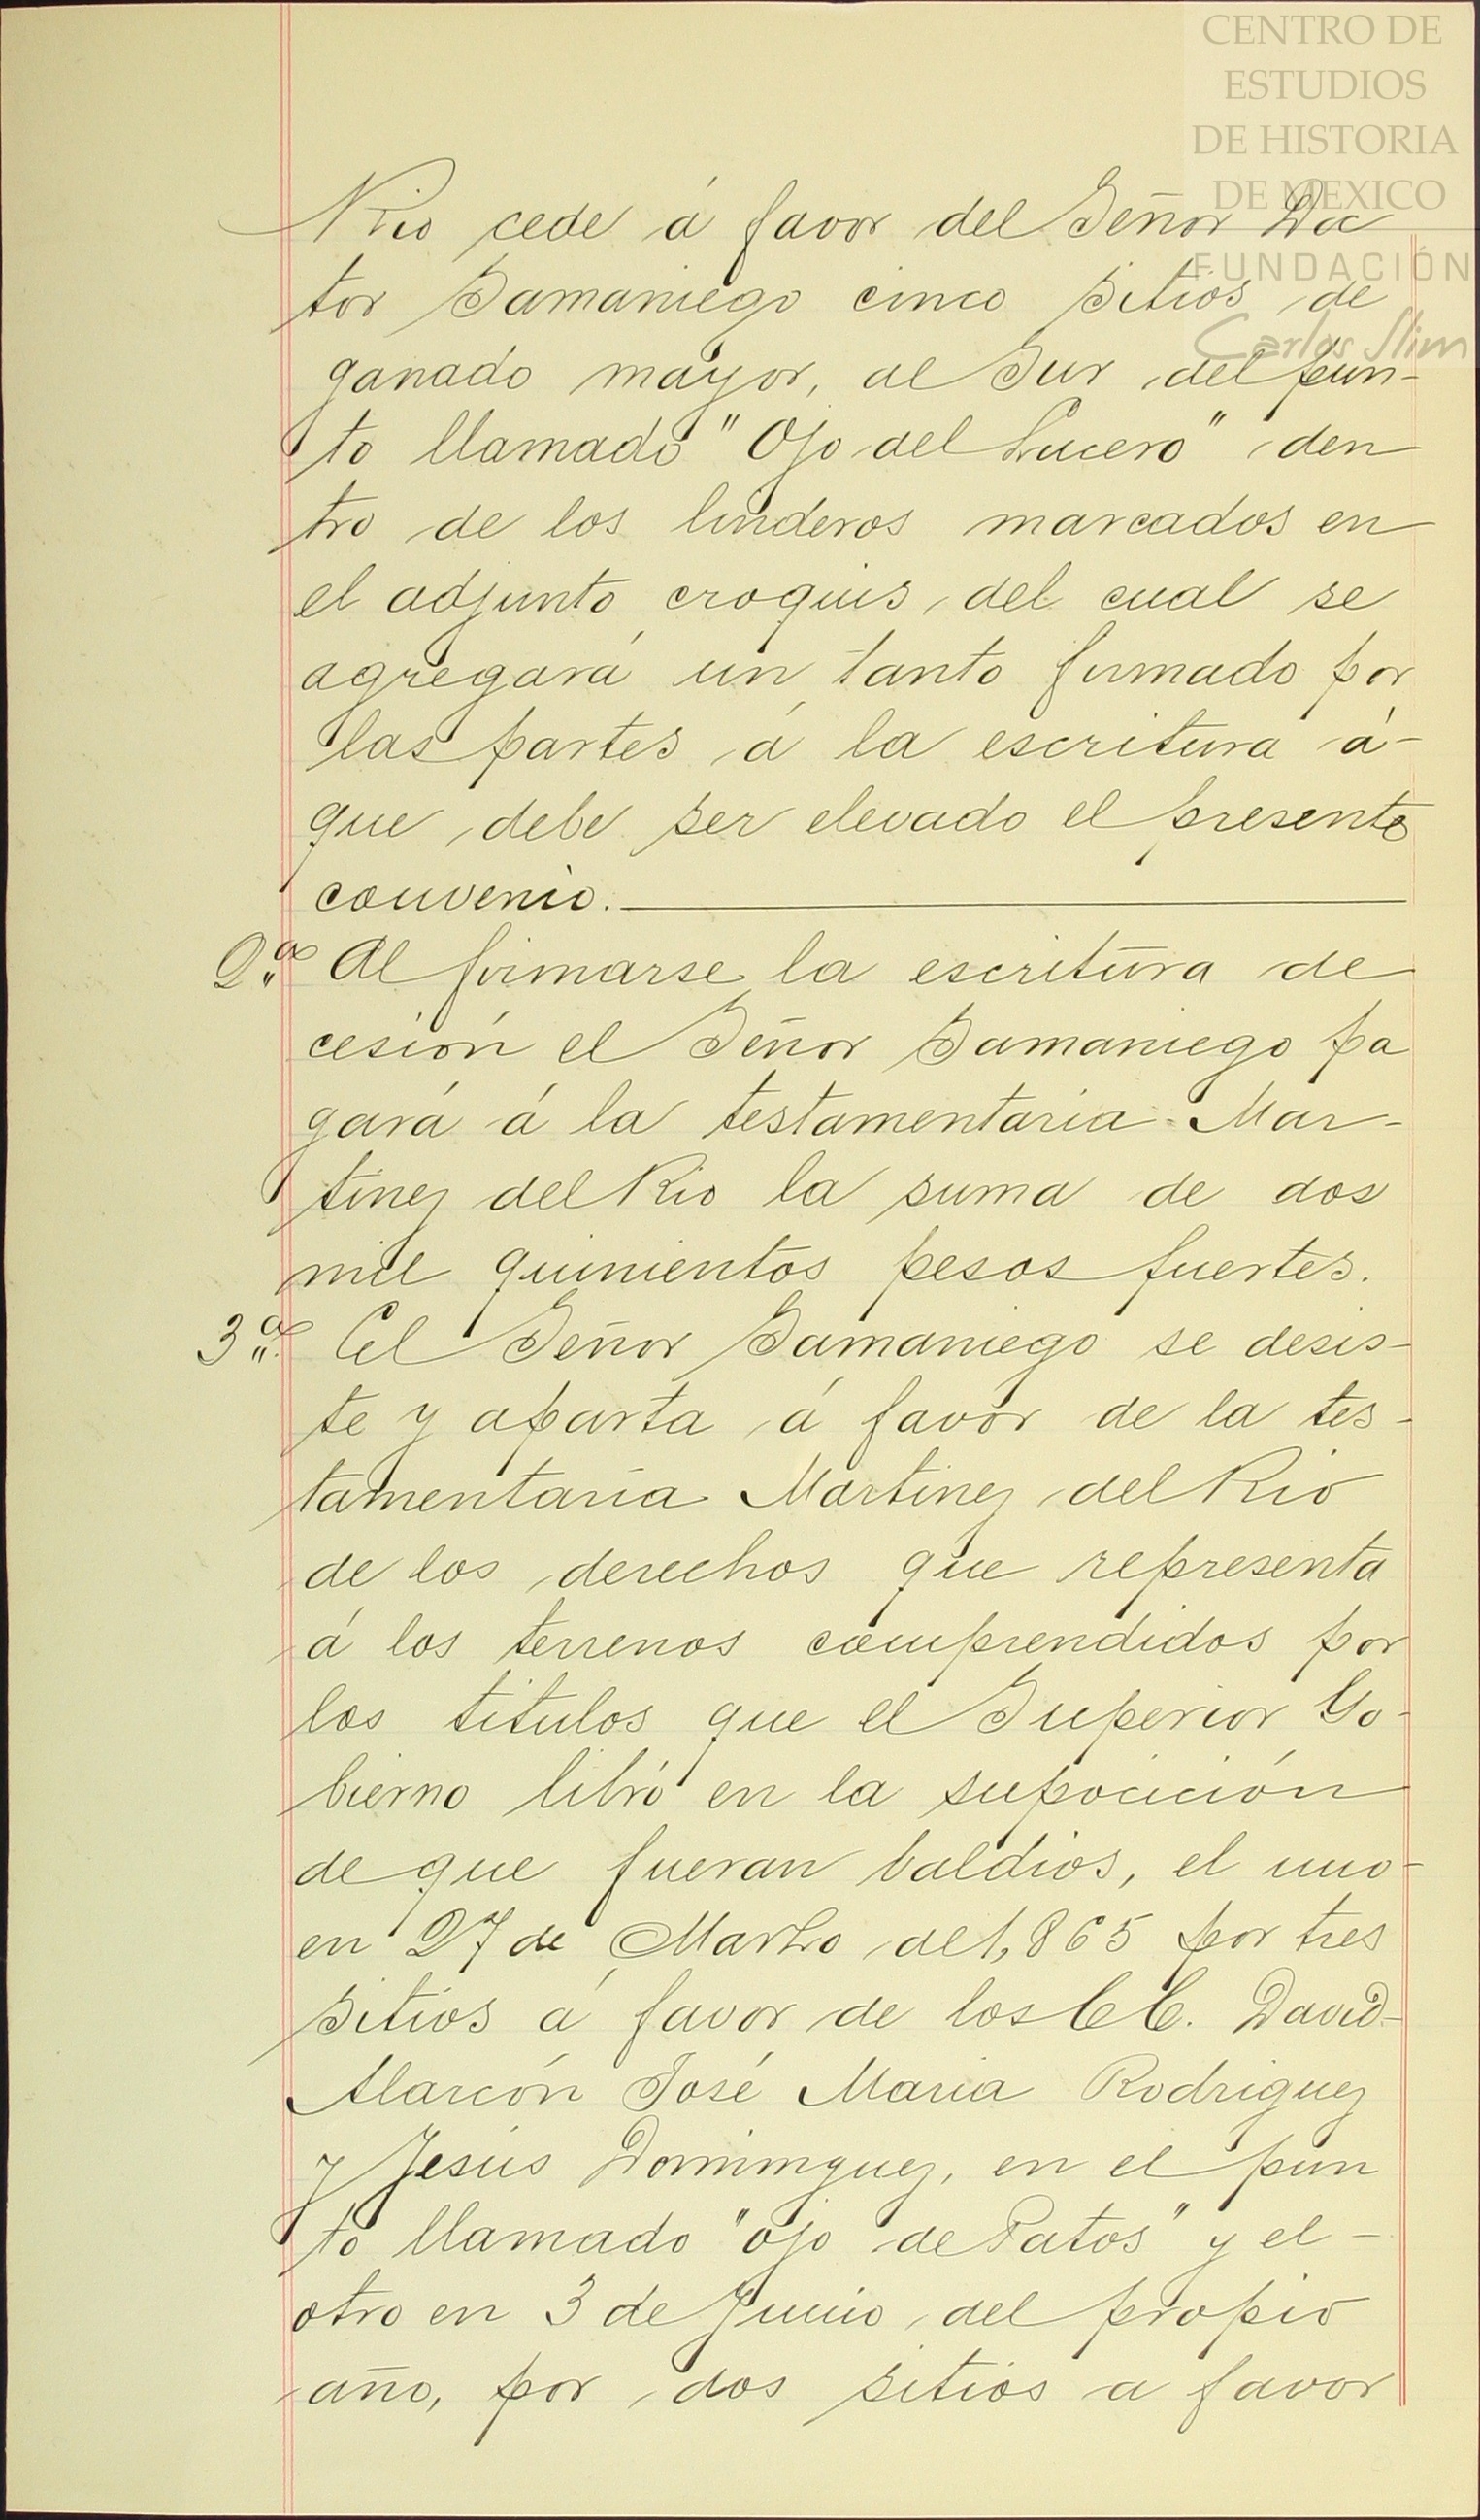 CENTRO DE
ESTUDIOS
DE HISTORIA
DE MEXICO
FUNDACIÓN
Carlos Slim
Rio cede á favor del Señor Doc
tor Samaniego cinco sitios de
ganado mayor, al Sur del pun-
to llamado "Ojo del Lucero" den
tro de los linderos marcados en
el adjunto croquis, del cual se
agregará un tanto firmado por
las partes á la escritura á-
que debe ser elevado el presente
convenio.
2.ª Al firmarse la escritura de
cesión el Señor Samaniego pa
gará á la testamentaria Mar-
tinez del Rio la suma de dos
mil quinientos pesos fuertes.
3.ª El Señor Samaniego se desis-
te y aparta á favor de la tes-
tamentaria Martinez del Rio
de los derechos que representa
á los terrenos comprendidos por
los titulos que el Superior Go-
bierno libró en la suposición
de que fueran baldios, el uno-
en 27 de Marzo de 1,865 por tres
sitios á favor de los CC. David-
Alarcón José Maria Rodriguez
y Jesús Dominguez, en el pun
to llamado "ojo de Patos" y el-
otro en 3 de Junio del propio
año, por dos sitios a favor